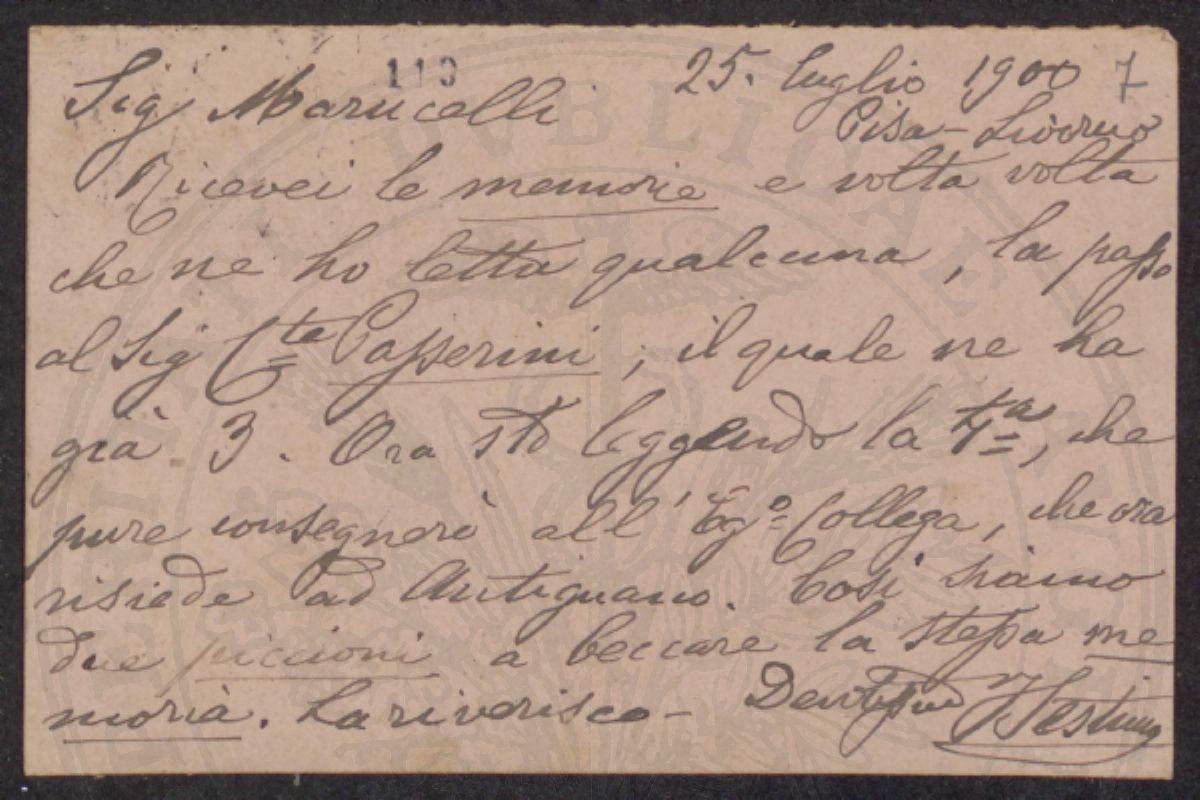 119
25. luglio 1900 7
Sig Marucelli
Pisa - Livorno
Ricevei le memorie e volta volta
che ne ho letta qualcuna, la passo
al Sig C.te Passerini, il quale ne ha
già 3. Ora stò leggendo la 4.a, che
pure consegnerò all' Eg.o Collega, che ora
risiede ad Antignano. Così siamo
due piccioni a beccare la stessa me
moria. La riverisco -